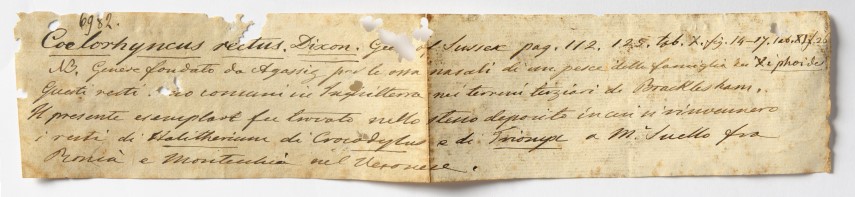 6982.
Coelorhyncus rectus. Dixon. Geol. of Sussex pag. 112. 125. tab. X. fig. 14-17. tab. XI. f. 26
NB. Genere fondato da Agassiz per le ossa nasali di un pesce della famiglia dei Xiphoidei
Questi resti sono comuni in Inghilterra nei terreni terziari di Bracklesham.
Il presente esemplare fu trovato nello stesso deposito in cui si rinvennero
i resti di Halitherium di Crocodylus e di Trionyx a Me Suello fra
Roncà e Montecchia nel Veronese.